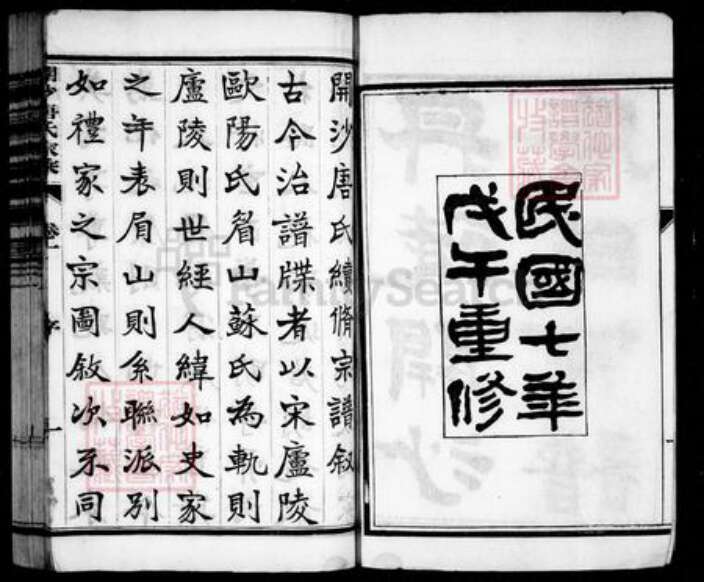 民國七年
戊午重修
開沙唐氏續脩宗譜叙
古今治譜牒者以宋廬陵
歐陽氏眉山蘇氏為軌則
廬陵則世經人緯如史家
之年表眉山則系聯派別
如禮家之宗圖敘次不同
卷一
序
一
FamilySearch